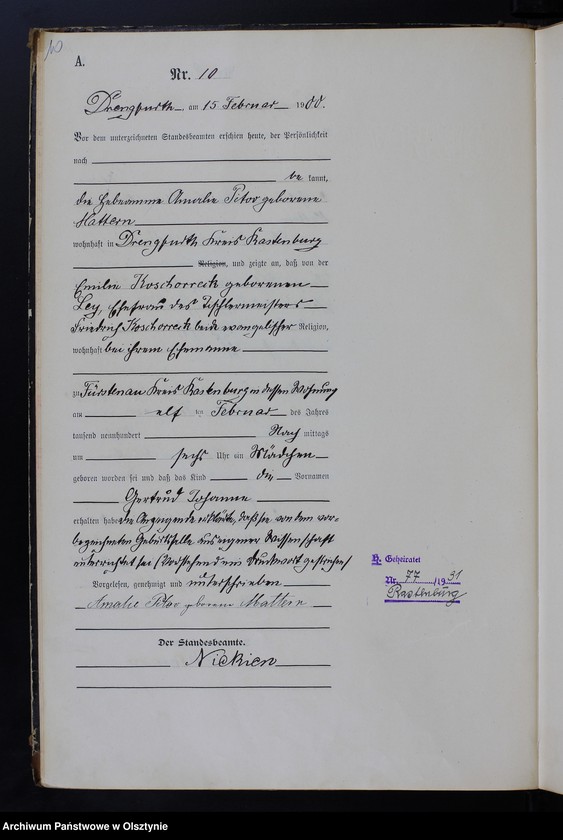 10
A.
Nr. 10
Drengfurth am 15 Februar 1900.
Vor dem unterzeichneten Standesbeamten erschien heute, der Persönlichkeit
nach
be kannt,
die Hebeamme Amalie geborene
Mattern
wohnhaft in Drengfurth Kreis Rastenburg
Religion, und zeigte an, daß von der
Emilie Koschorreck geborenen
Ley, Ehefrau des Tischlermeisters
Friedrich Koschorreck beide evangelischer Religion,
wohnhaft bei ihrem Ehemanne
zu Fürstenau Kreis Rastenburg in dessen Wohnung
am elf ten Februar des Jahres
tausend neunhundert Nach mittags
um sechs Uhr ein Mädchen
geboren worden sei und daß das Kind die Vornamen
Gertrud Johanne
erhalten habe. die Anzeigende erklärte, daß sie von dem vor-
bezeichneten Geburtsfalle aus eigener Wissenschaft
unterrichtet sei / Vorstehend ein Druckwort gestrichen /
Vorgelesen, genehmigt und unterschrieben
Amalie geborene Mattern
Der Standesbeamte.
Nickien
H. Geheiratet
Nr. 77 /19 31
Rastenburg
Archiwum Państwowe w Olsztynie